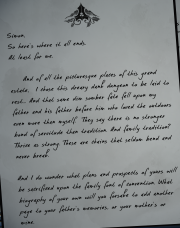 Simon,
So here's where it all ends.
At least for me.
And of all the picturesque places of this grand
estate, I chose this dreary dank dungeon to be laid to
rest... And that same dim sombre fate fell upon my
father and his father before him who loved the outdoors
even more than myself. They say there is no stronger
bond of servitude than tradition. And family tradition?
Thrice as strong. These are chains that seldom bend and
never break.
And I do wonder what plans and prospects of yours will
be sacrificed upon the family font of convention. What
biography of your own will you forsake to add another
page to your father's memories, or your mother's or
mine.